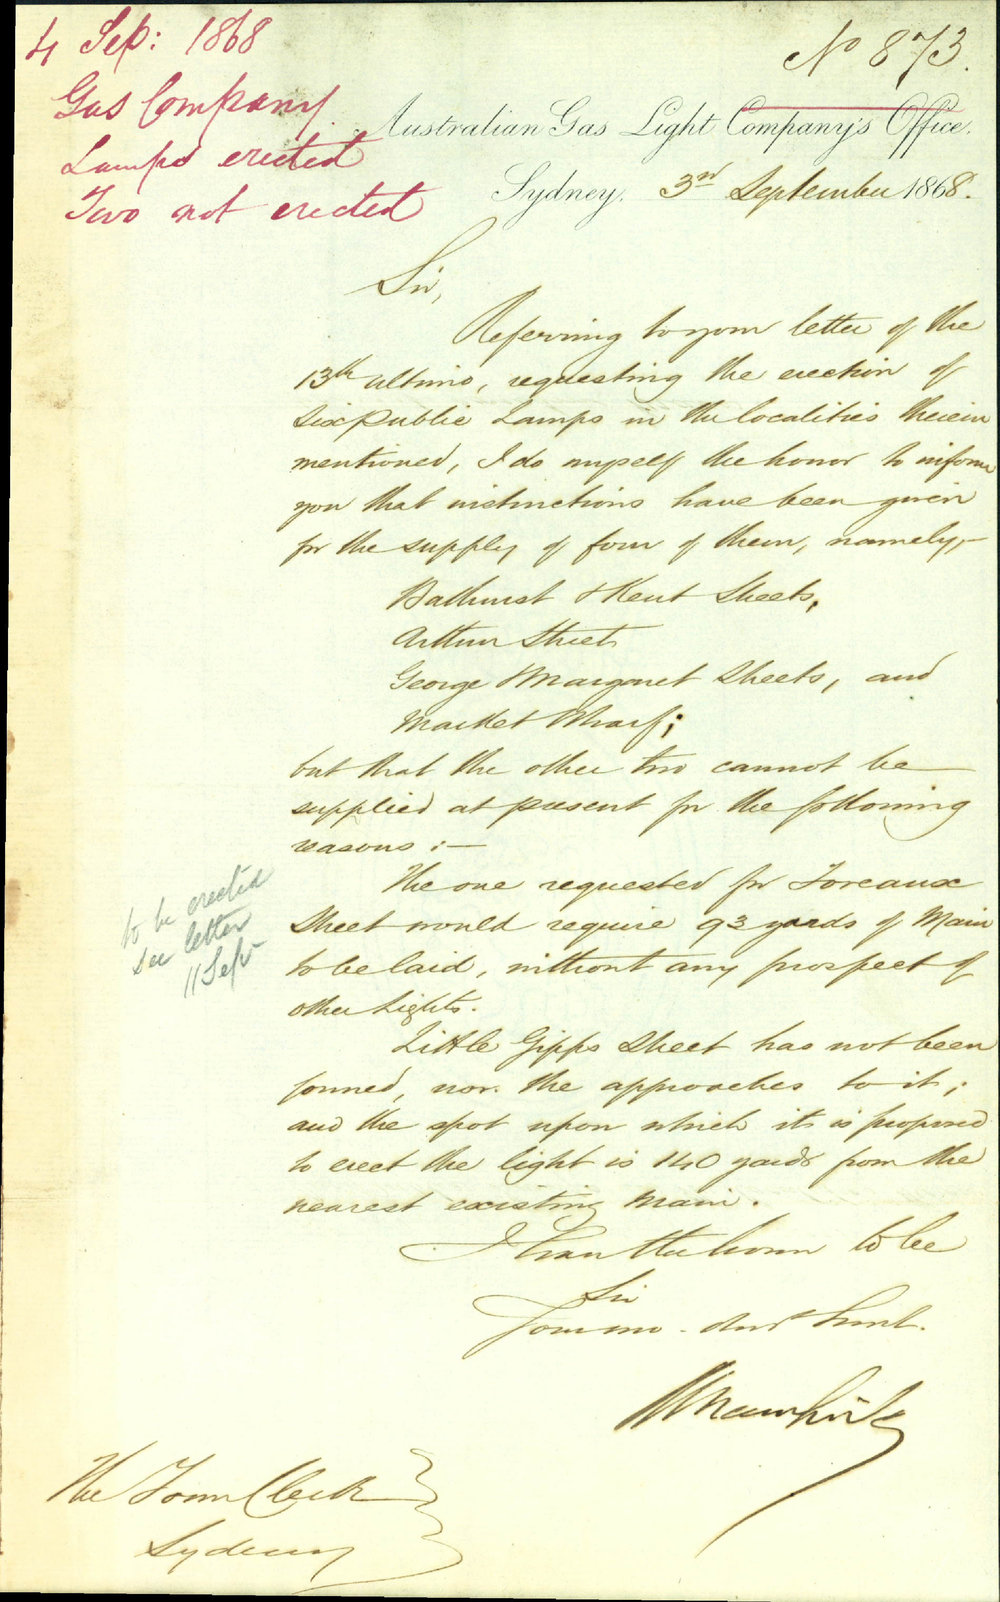 4 Sep: 1868
Gas Company
Lamps erected
Two not erected
No 873.
Australian Gas Light Company's Office.
Sydney, 3rd September 1868.
Sir,
Referring to your letter of the
13th ultimo, requesting the erection of
six public Lamps in the localities therein
mentioned, I do myself the honor to inform
you that instructions have been given
for the supply of four of them, namely,-
Bathurst & Kent Streets,
Arthur Street
George & Margaret Streets, and
Market Wharf;
but that the other two cannot be
supplied at present for the following
reasons :—
The one requested for Foveaux
Street would require 93 yards of Main
to be laid, without any prospect of
other Lights.
to be erected
see letter
11 Sep
Little Gipps Street has not been
formed, nor the approaches to it;
and the spot upon which it is proposed
to erect the light is 140 yards from the
nearest existing Main.
I have the honor to be
Sir
Your mo. obdt Servt.
The Town Clerk
Sydney